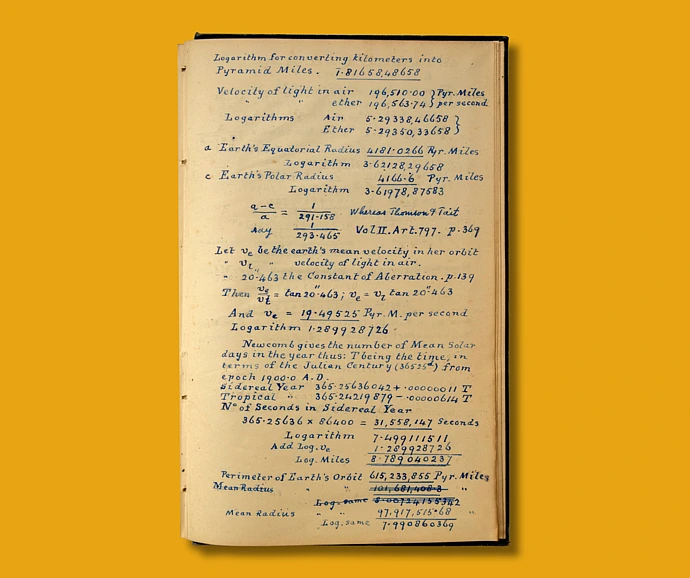 Logarithm for converting kilometers into
Pyramid Miles. 1̄·81658,48658
Velocity of light in air 196,510·00 } Pyr. Miles
" " ether 196,563·74 } per second
Logarithms Air 5·29338,46658 }
Ether 5·29350,33658 }
a Earth's Equatorial Radius 4181·0266 Pyr. Miles
Logarithm 3·62128,29658
c Earth's Polar Radius 4166·6 Pyr. Miles
Logarithm 3·61978,87583
a-c/a = 1/291·158 Whereas Thomson & Tait
say 1/293·465 Vol II. Art. 797. p. 369
Let ve be the earth's mean velocity in her orbit
" vl " " velocity of light in air.
" 20"·463 the Constant of Aberration. p.139
Then ve/vl = tan 20"·463; ve = vl tan 20"·463
And ve = 19·49525 Pyr. M. per second
Logarithm 1·289928726
Newcomb gives the number of Mean Solar
days in the year thus: T being the time, in
terms of the Julian Century (36525d) from
epoch 1900·0 A.D.
Sidereal Year 365·25636042 + ·00000011 T
Tropical " 365·24219879 − ·00000614 T
No of Seconds in Sidereal Year
365·25636 × 86400 = 31,558,147 Seconds
Logarithm 7·499111511
Add Log. ve 1·289928726
Log. Miles 8·789040237
Perimeter of Earth's Orbit 615,233,855 Pyr. Miles
Mean Radius " " 101,681,408·3 "
Log. same 8·00724155342
Mean Radius " " 97,917,515·68 "
Log. same 7·990860369